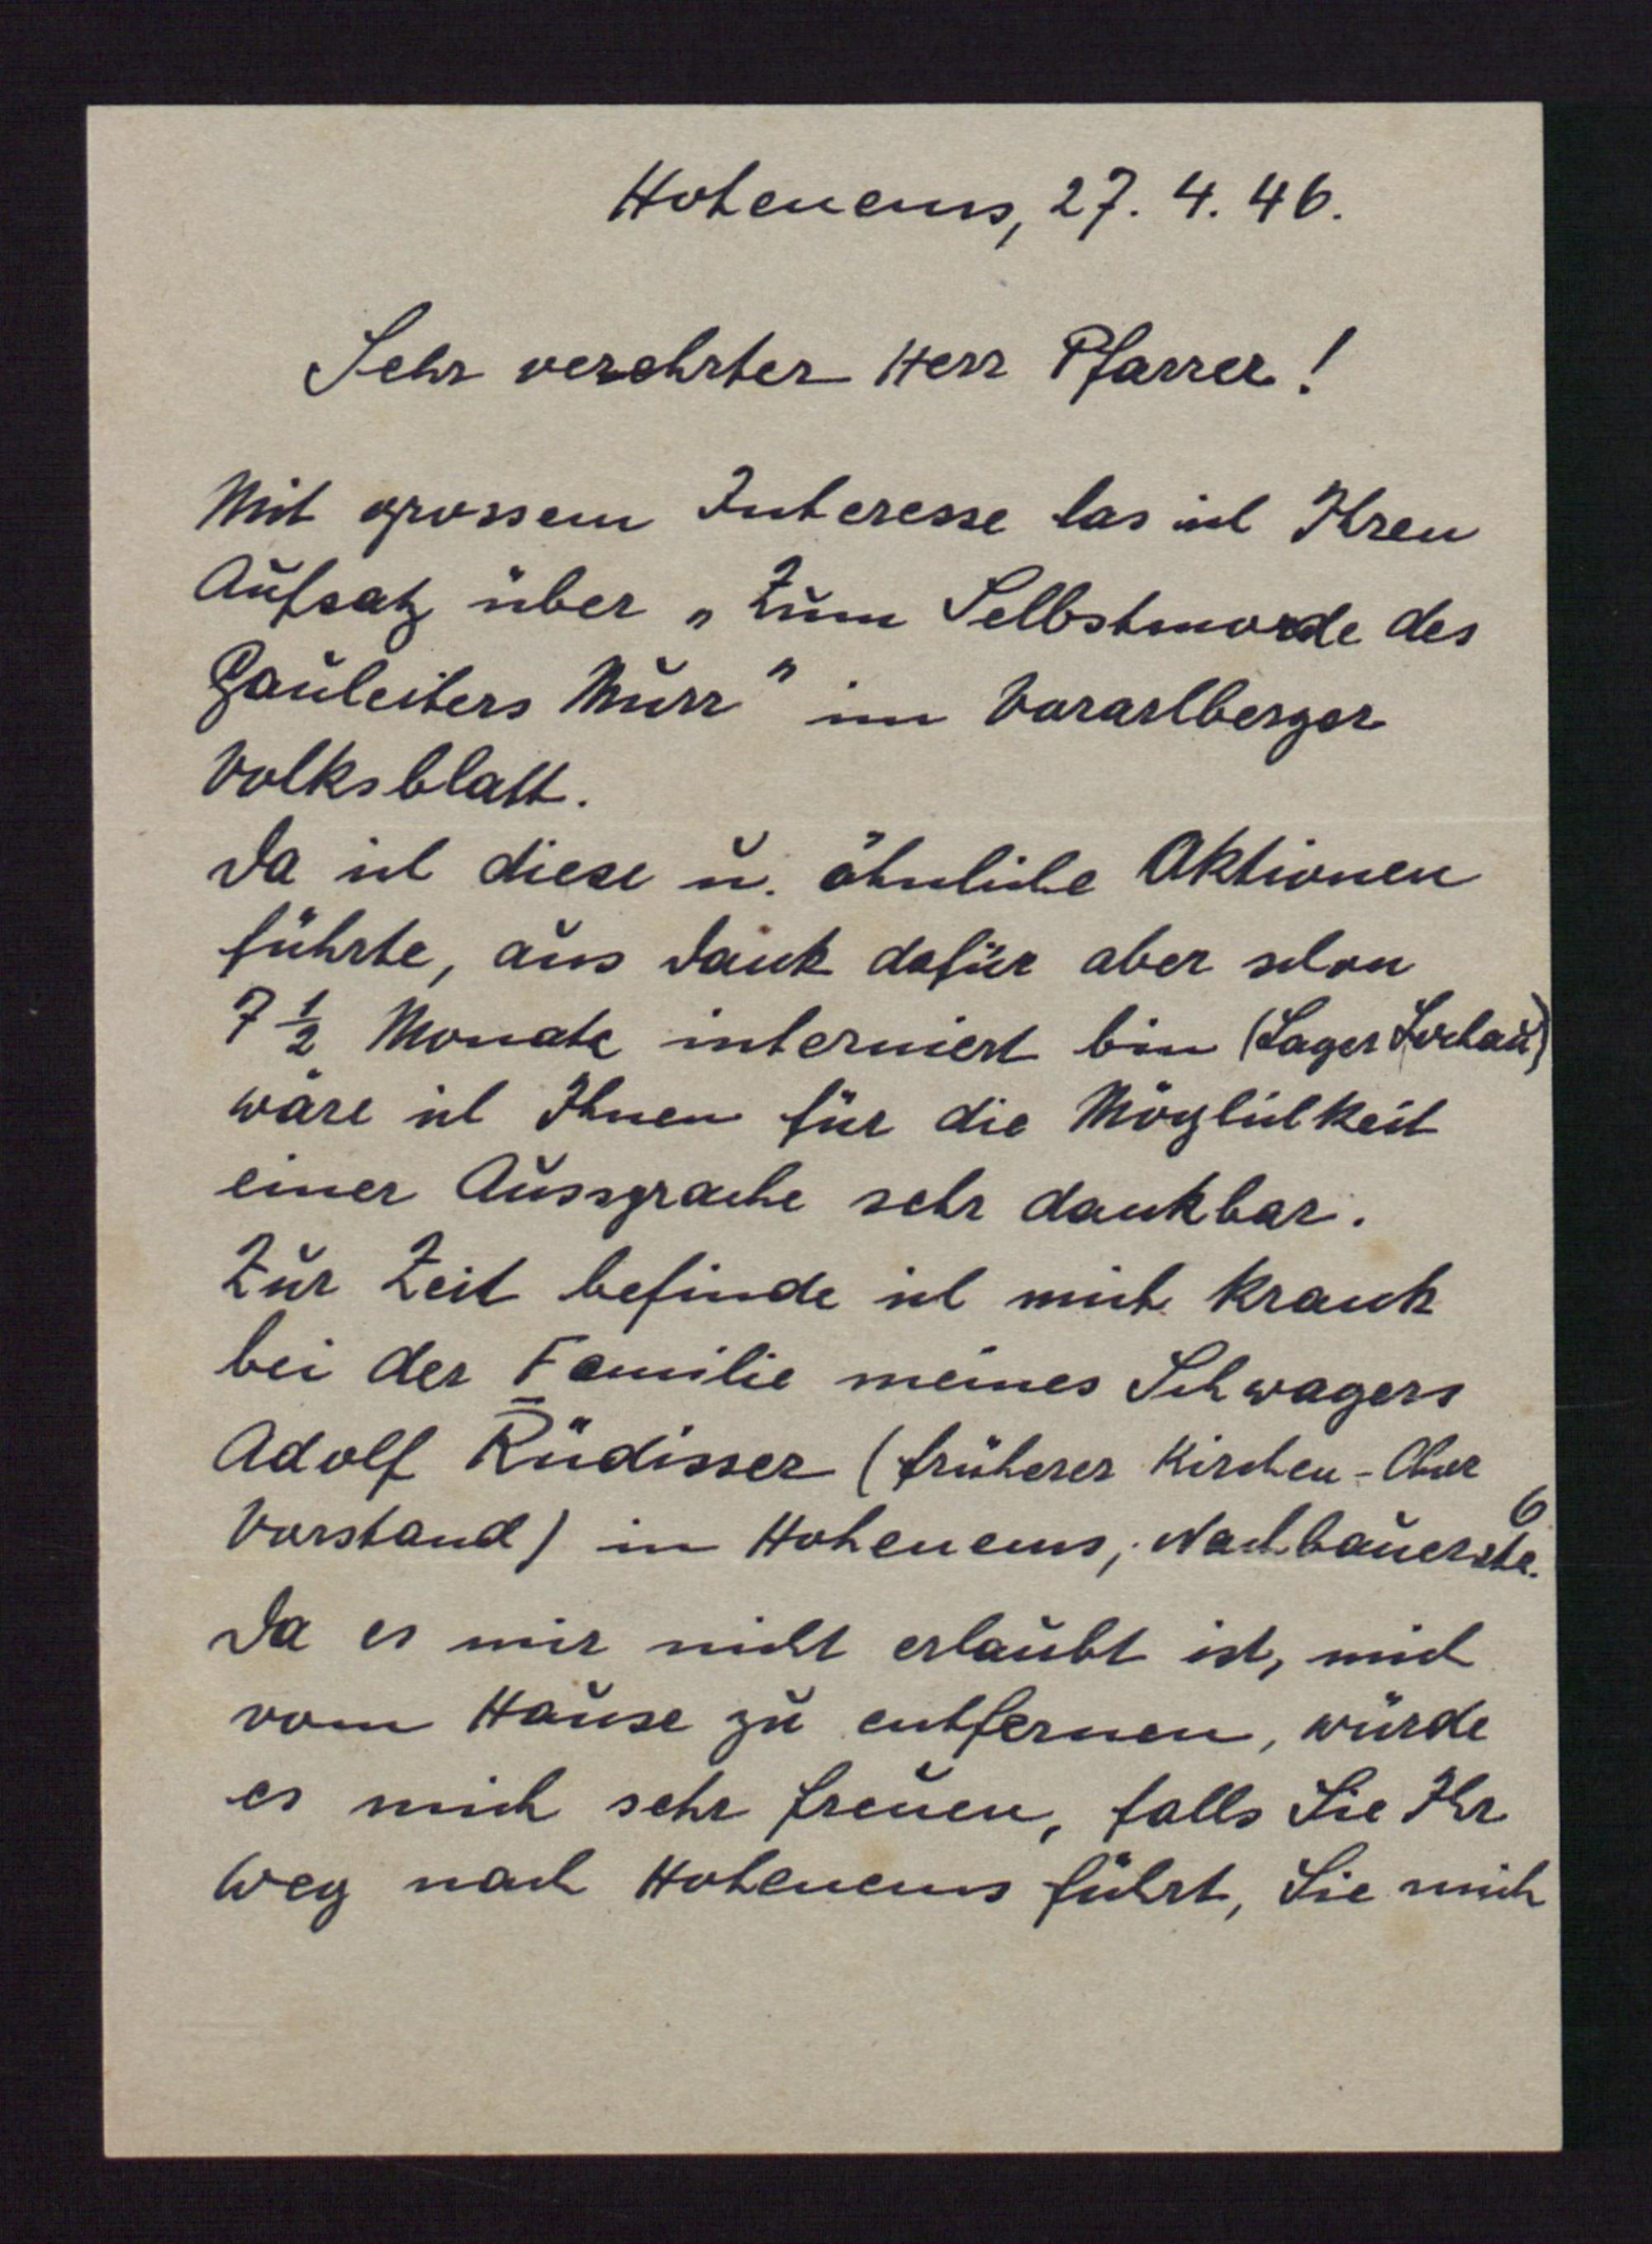 Hohenems, 27. 4. 46.
Sehr verehrter Herr Pfarrer!
Mit grossem Interesse las ich Ihren
Aufsatz über „Zum Selbstmorde des
Gauleiters Murr" im Vorarlberger
Volksblatt.
Da ich diese u. ähnliche Aktionen
führte, aus Dank dafür aber schon
7 ½ Monate interniert bin (Lager Lochau)
wäre ich Ihnen für die Möglichkeit
einer Aussprache sehr dankbar.
Zur Zeit befinde ich mich krank
bei der Familie meines Schwagers
Adolf Rüdisser (früherer Kirchen-Chor
Vorstand) in Hohenems, Nachbauerstr. 6
Da es mir nicht erlaubt ist, mich
vom Hause zu entfernen, würde
es mich sehr freuen, falls Sie Ihr
Weg nach Hohenems führt, Sie mich